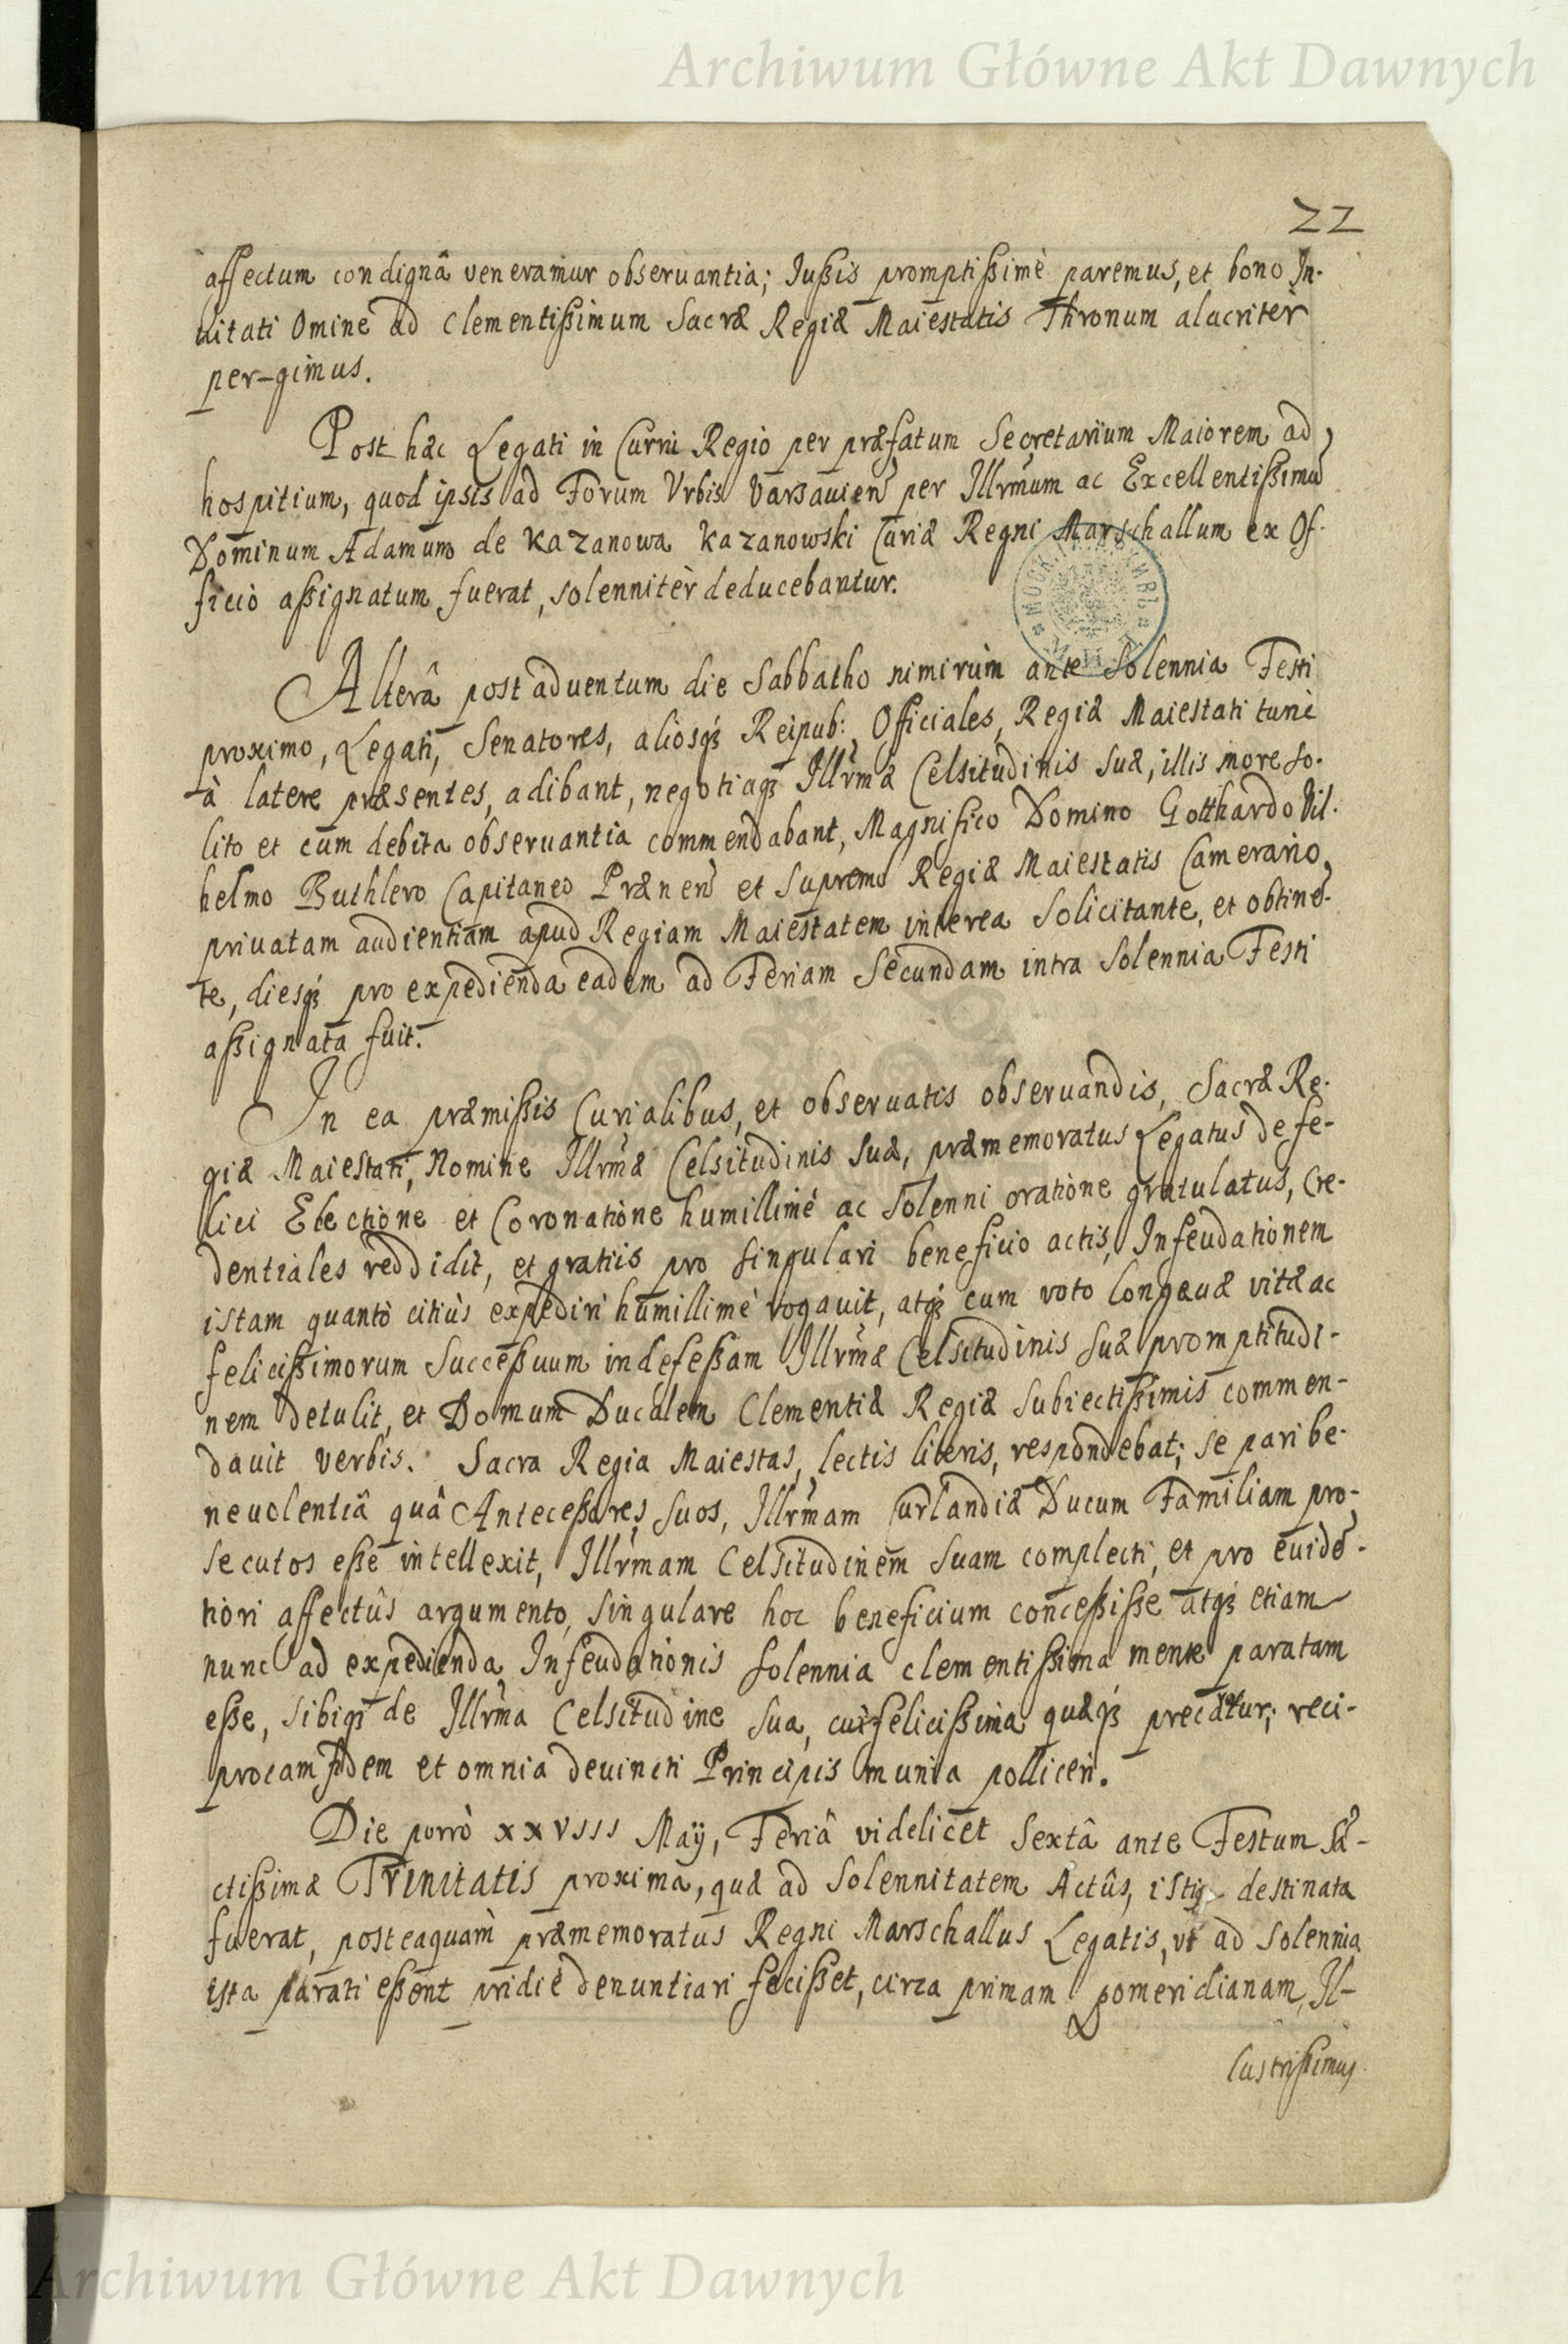 Archiwum Główne Akt Dawnych
22
affectum condignâ veneramur obseruantia; Jußis promptißimè paremus, et bono In-
uitati Omine ad Clementißimum Sacræ Regiæ Maiestatis Thronum alacritèr
per-gimus.
Post hæc Legati in Curru Regio per præfatum Secretarium Maiorem ad
hospitium, quod ipsis ad Forum Vrbis Varsauien̄ per Illrm̄um ac Excellentißimū
Dominum Adamum de Kazanowa Kazanowski Curiæ Regni Marschallum ex Of-
ficiò aßignatum fuerat, solennitèr deducebantur.
Alterâ post aduentum die Sabbatho nimirùm ante Solennia Festi
proximo, Legati, Senatores, aliosq́ꝫ Reipub: Officiales, Regiæ Maiestati tunc
à latere præsentes, adibant, negotiaqꝫ Illrm̄æ Celsitudinis Suæ, illis more so-
lito et cum debita obseruantia commendabant, Magnifico Domino Gotthardo Vil-
helmo Buthlero Capitaneo Prænen̄ et Supremo Regiæ Maiestatis Camerario,
priuatam audientiam apud Regiam Maiestatem interea Solicitante, et obtinē-
te, diesq́ꝫ pro expedienda eadem ad Feriam Secundam intra Solennia Festi
aßignata fuit.
In ea præmißis Curialibus, et obseruatis obseruandis, Sacræ Re-
giæ Maiestati, Nomine Illrm̄æ Celsitudinis Suæ, præmemoratus Legatus de fe-
lici Electione et Coronatione humillimè ac Solenni oratione gratulatus, Cre-
dentiales reddidit, et gratiis pro singulari beneficio actis, Infeudationem
istam quantò citiùs expediri humillimè rogauit, atqꝫ cum voto longæuæ vitæ ac
felicißimorum Succeßuum indefeßam Illrm̄æ Celsitudinis Suæ promptitudi-
nem detulit, et Domum Ducalem Clementiæ Regiæ Subiectißimis commen-
dauit verbis. Sacra Regia Maiestas, lectis literis, respondebat; se pari be-
neuolentiâ quâ Anteceßores suos, Illrm̄am Curlandiæ Ducum Familiam pro-
secutos eße intellexit, Illrm̄am Celsitudinem Suam complecti, et pro euidē-
tiori affectûs argumento, Singulare hoc beneficium conceßiße atqꝫ etiam
nunc ad expedienda Infeudationis Solennia clementißima mente paratam
eße, sibiqꝫ de Illrm̄a Celsitudine Sua, cui felicißima quæq́ꝫ precatur; reci-
procam fidem et omnia deuincti Principis munia polliceri.
Die porrò xxvııı Maÿ, Feriâ videlicet Sextâ ante Festum Sā-
ctißimæ Trinitatis proxima, quæ ad Solennitatem Actûs, destinata
fuerat, posteaquàm præmemoratus Regni Marschallus Legatis, vt ad Solennia
ista parati eßent pridiè denuntiari fecißet, circa primam pomeridianam, Il-
lustrißimus
Archiwum Główne Akt Dawnych